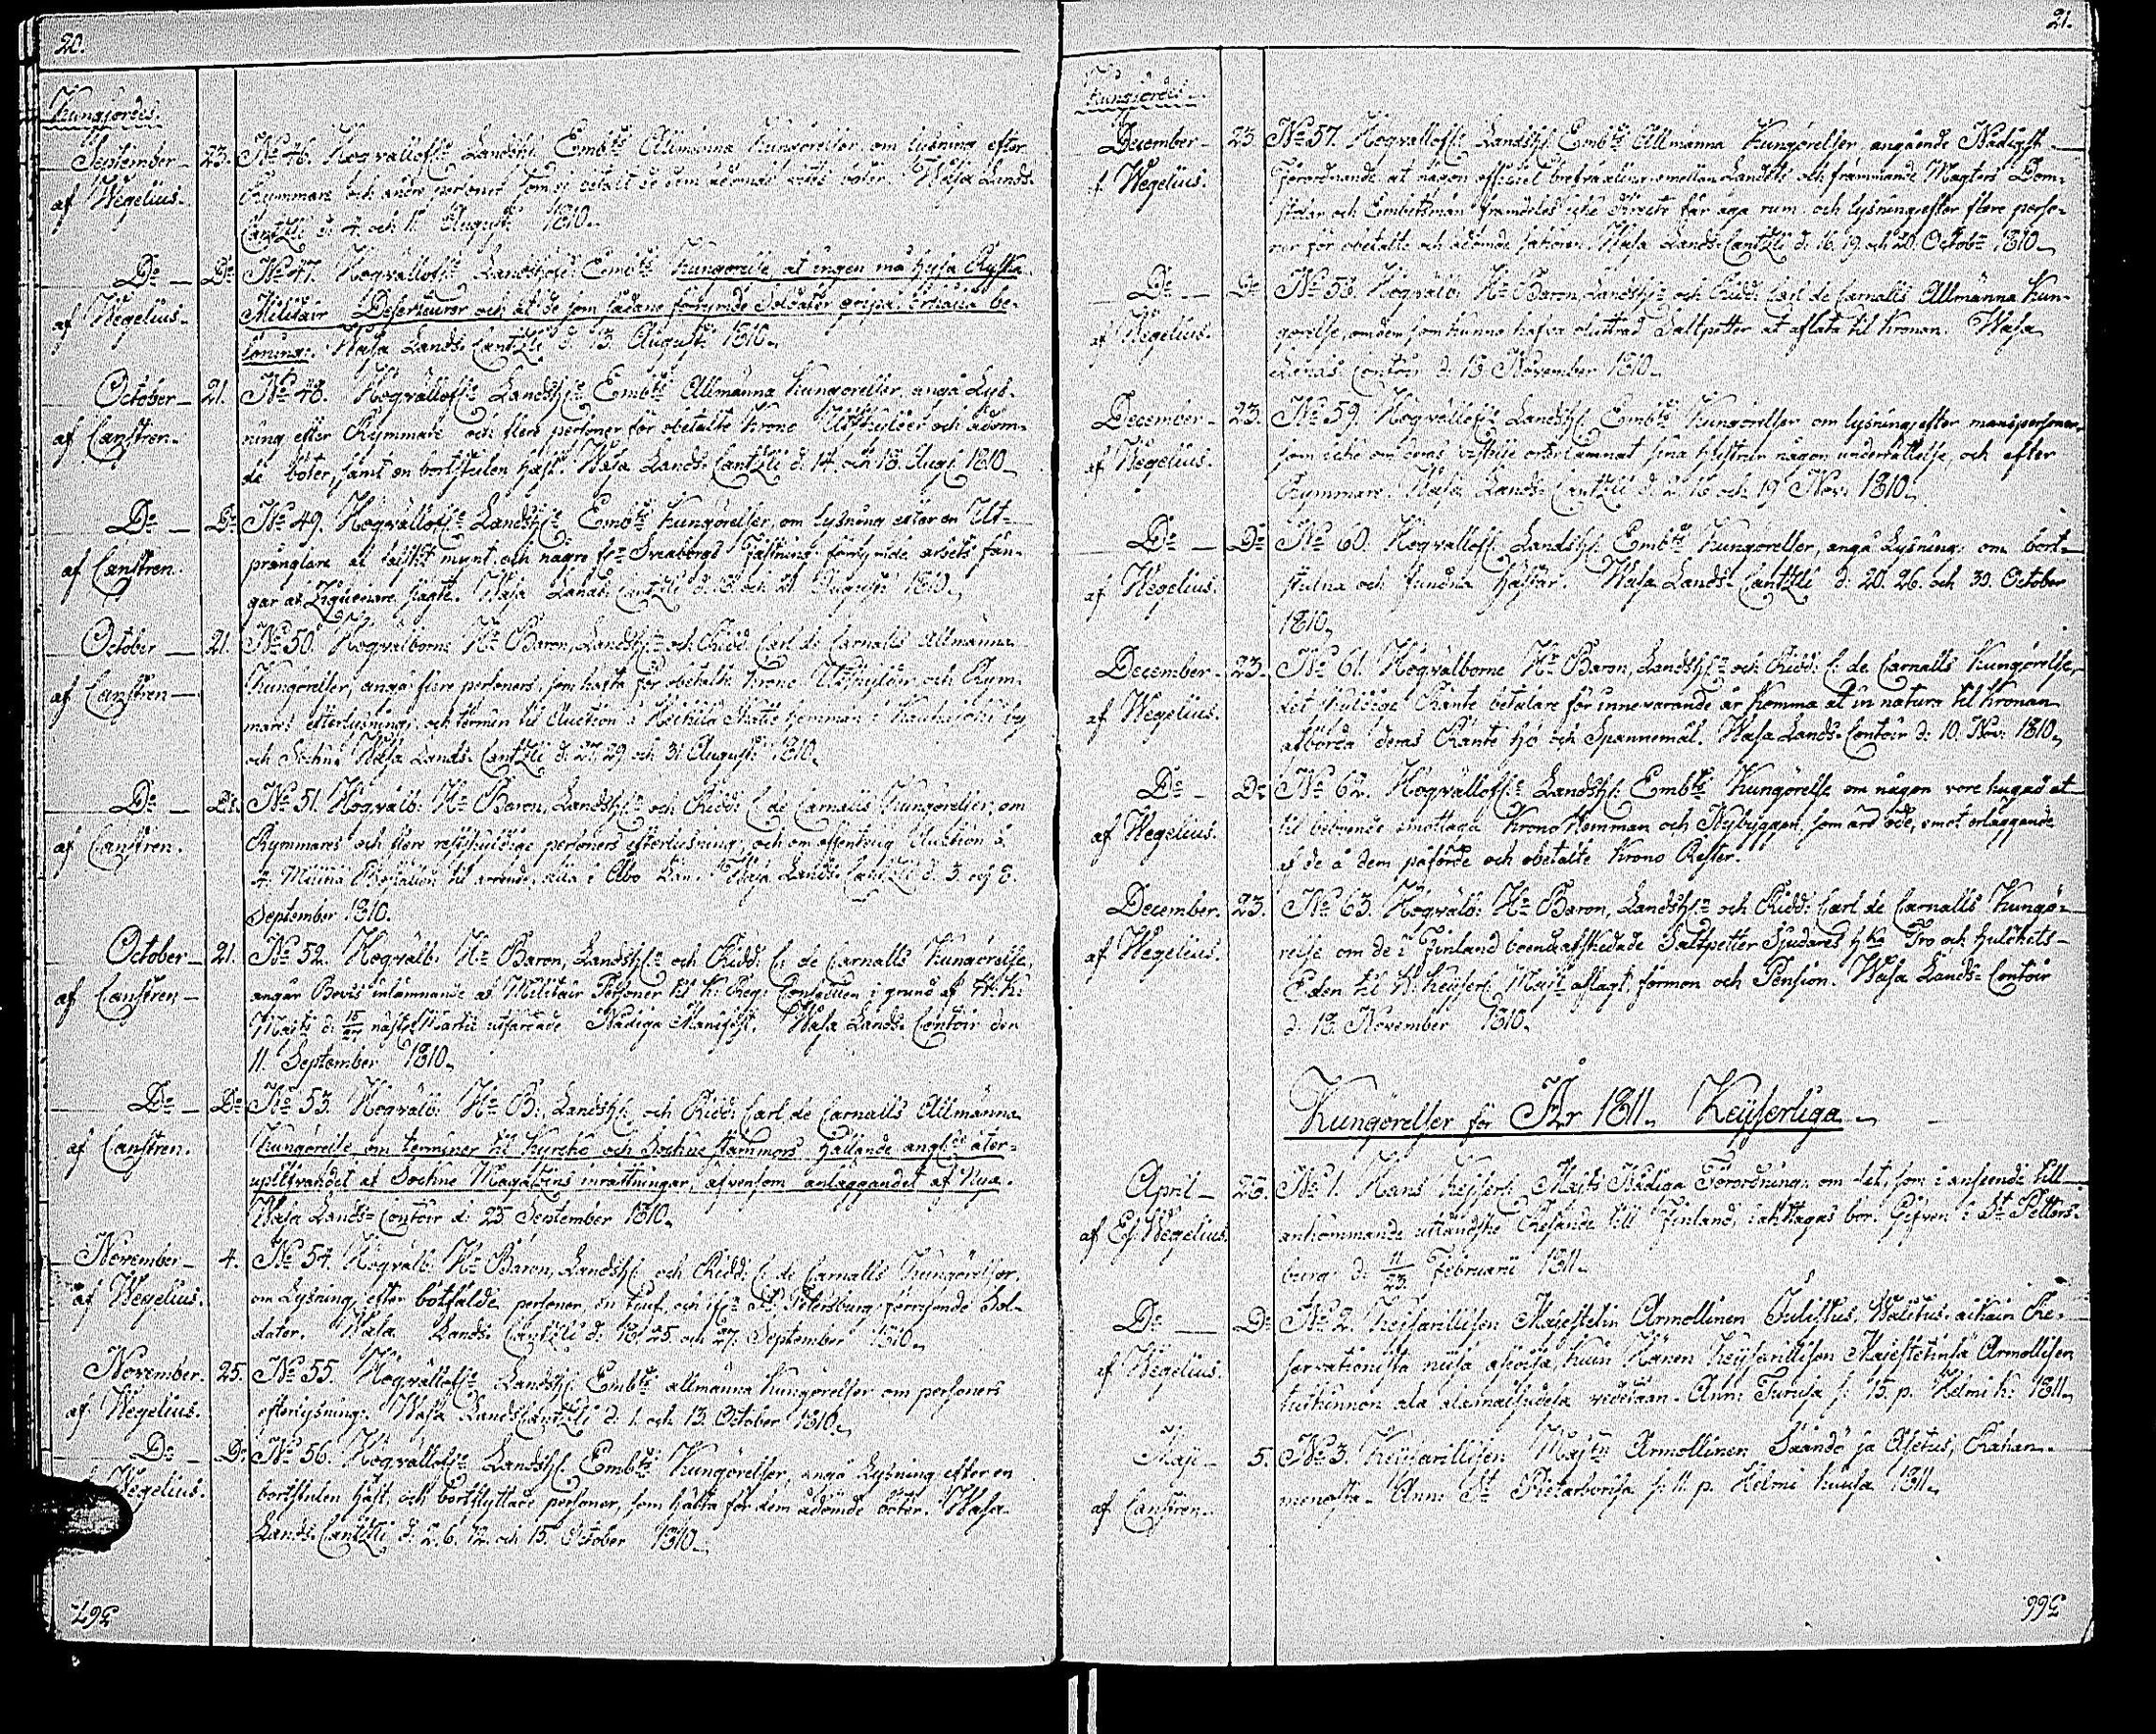 20.
Kungjordes.
September 23. No 46. Högvällofl. Landshl. Embts Allmänna Kungörelser om lysning efter
af Wegelius. Rymmare och andre personer som ej betalt de dem ådömde böter. Wasa Lands
Cantzli d. 4. och 11. Augusti 1810.
Do Do No 47. Högvällofl. Landshl. Embts Kungörelse, at ingen må hysa Ryska
af Wegelius. Militair Deserteurer och at de som sådane förrymde Soldater gripa, erhålla be-
löning. Wasa Lands Cantzli d. 13. August. 1810.
October 21. No 48. Högvällofl. Landshl. Embts Allmänna Kungörelser, angå. Lys-
af Canstren. ning efter Rymmare och flere personer för obetalte Krono Utskylder och ådöm-
de böter, samt en bortstulen häst. Wasa Lands Cantzli d. 14. och 18. Aug. 1810.
Do Do No 49. Högvällofl. Landshl. Embts Kungörelser, om lysning efter en Ut-
af Canstren. prånglare af falskt mynt, och några fr. Sveaborgs Fästning förrymde arbets fån-
gar af Ziguenare slägte. Wasa Lands Cantzli d. och 21 Augusti 1810.
October 21. No 50. Högvälborne Hr Baron, Landshl. och Ridd. Carl de Carnalls Allmänna
af Canstren Kungörelser, angå. flere personers, som häfta för obetalte Krono Utskylder och Rym-
mares efterlysning, och termin til Auction å Heikilä Matts hemman i Kauhajoki by
och Sochn. Wasa Lands Cantzli d. 27. 29 och 31 Augusti 1810.
Do Do No 51. Högvälb. Hr Baron, Landshl. och Ridd. C. de Carnalls Kungörelser, om
af Canstren. Rymmares och flere restskyldige personers efterlysning, och om offentelig Auction å
4. Militie Boställen til arrende, alla i Åbo Län. Wasa Lands Cantzli d. 3. och 8.
September 1810.
October 21. No 52. Högvälb. Hr Baron, Landshl. och Ridd. C. de Carnalls Kungörelse,
af Canstren angår Bevis inlämnande af Militair Personer til K. Reg. Conseilen i grund af H. K.
Majts d. 15/27 nästl. Martii utfärdade Nådiga Manifest. Wasa Lands Contoir den
11. September 1810.
Do Do No 53. Högvälb. Hr B., Landshl. och Ridd. Carl de Carnalls Allmänna
af Canstren. Kungörelse, om terminer til Kyrcko och Sochne stämmors hållande angl.de åter-
uplifvandet af Sochne Magazins inrättningar, äfvensom anläggandet af Nya.
Wasa Lands Contoir d. 25. September 1810.
November 4. No 54. Högvälb. Hr Baron, Landshl. och Ridd. C. de Carnalls Kungörelser,
af Wegelius. om Lysning efter botfälde personer, en tjuf, och ifr. St. Petersburg förrymde Sol-
dater. Wasa Lands Cantzli d. 18. 25. och 27. September 1810.
November. 25. No 55. Högvällofl. Landshl. Embts allmänna Kungörelser om personers
af Wegelius. efterlysning. Wasa Lands Cantzli d. 1. och 13. October 1810.
Do Do No 56. Högvällofl. Landshl. Embts Kungörelser, angå. Lysning efter en
Wegelius. bortstulen häst, och bortflyttade personer, som häfta för dem ådömde böter. Wasa
Lands Cantzli d. 2. 6. 12. och 15. October 1810.
367.
21.
Kungjordes.
December 23. No 57. Högvällofl. Landshl. Embts Allmänna Kungörelser, angående Nådigst
af Wegelius. Förordnande, at någon officiel brefväxling emellan Landets och främmande Magters Dom-
stolar och Embetsmän framdeles icke directe får äga rum, och lysning efter flere perso-
ner för obetalte och ådömde sakören. Wasa Lands Cantzli d. 16. 19. och 20. Octobr 1810.
Do Do No 58. Högvälb. Hr Baron, Landshl. och Ridd. Carl de Carnalls Allmänna Kun-
af Wegelius. görelse, om dem som kunna hafva olutrad Saltpetter at aflåta til Kronan. Wasa
Lands Contoir d. 18 November 1810.
December 23. No 59. Högvällofl. Landshl. Embts Kungörelser om lysning efter mansperson,
af Wegelius. som icke om deras vistelse ort lämnat sina hustrur någon underrättelse, och efter
Rymmare. Wasa Lands Cantzli d. 2. 16 och 19 Nov. 1810.
Do Do No 60. Högvällofl. Landshl. Embts Kungörelser, angå. Lysning: om bort-
af Wegelius. stulna och fundna hästar. Wasa Lands Cantzli d. 20. 26. och 30. October
1810.
December 23. No 61. Högvälborne Hr Baron, Landshl. och Ridd. C. de Carnalls Kungörelse,
af Wegelius. det skuldige Ränte betalare för innevarande år komma at in natura til Kronan
afbörda deras Ränte hö och Spannemål. Wasa Lands Contoir d. 10. Nov. 1810.
Do Do No 62. Högvällofl. Landshl. Embts Kungörelse om någon vore hugad at
af Wegelius. til beboende emottaga Krono Hemman och Nybyggen, som äro öde, emot erläggande
af de å dem påförde och obetalte Krono Rester.
December. 23. No 63. Högvälb. Hr Baron, Landshl. och Ridd. Carl de Carnalls Kungö-
af Wegelius. relse om de i Finland boende afskedade Saltpetter Sjudares, Tro och huldhets-
Eden til H. Keyserl. Majt aflagt, förmon och Pension. Wasa Lands Contoir
d. 18. November 1810.
Kungörelser för År 1811. Keyserliga
April 23. No 1. Hans Keyserl. Majts Nådiga Förordning om det, som i anseende till
af Es. Wegelius. ankommande utländske Resande till Finland, iakttagas bör. Gifven i St Petters-
burg d. 11/23. Februarii 1811.
Do Do No 2. Keisarillisen Majestetin Armollinen Julistus, Walitus-aikain Re-
af Wegelius. servationista niisä asioisa, kuin Hänen Keisarillisen Majestetinsä Armollisen
tutkinnon ala alamaisudesa vedetään. Annettu Turusa s. 15. p. Helmi k. 1811.
Maji 5. No 3. Keisarillisen Majtn Armollinen Säändö ja Asetus, Rahan
af Canstren. menosta. Annettu St Pietarborisa s. 11. p. Helmi kuusa 1811.
366.